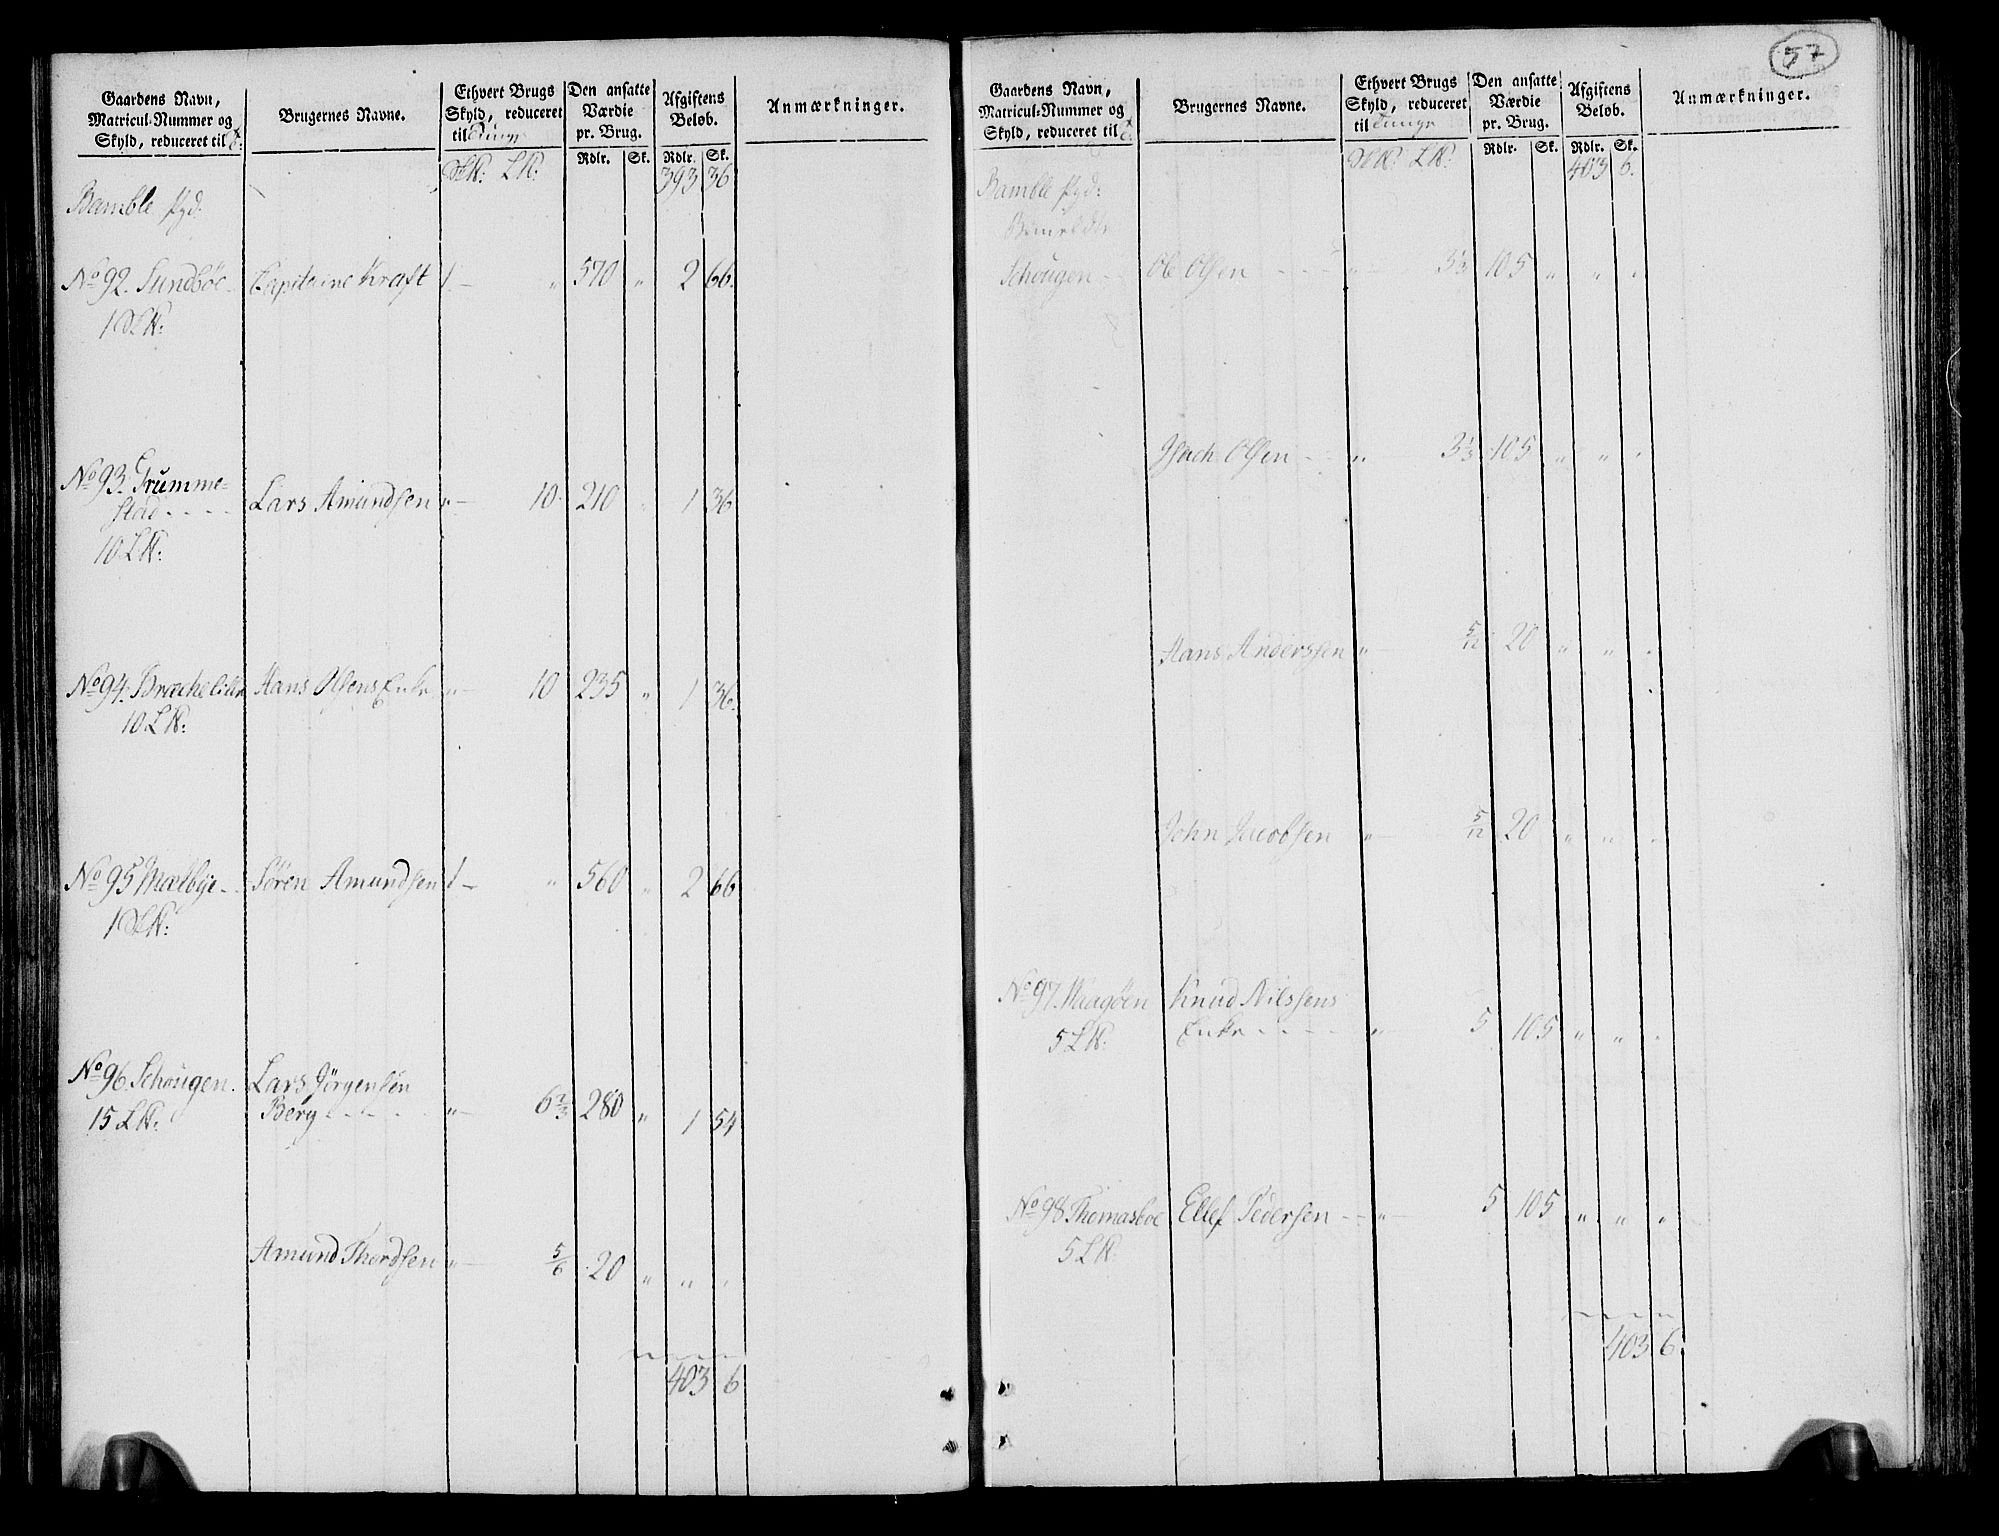 Gaardens Navn,
Matricul-Nummer og
Skyld, reduceret til
Brugernes Navne.
Ethvert Brugs
Skyld, reduceret
til Tunge
Den ansatte
Værdie
pr. Brug.
Afgiftens
Beløb.
Anmærkninger.
Rdlr. Sk. Rdlr. Sk.
393 36
Bamble
No 92. Sundböe Capitaine Kraft 1 — " 570 " 2 66.
1
No 93. Trumme-
stad - - - - Lars Amundsen " — 10 210 " 1 36
10
No 94. Hans Olsens Enke " — 10 235 " 1 36.
10
No 95 Mælbye - Sören Amundsen 1 — " 560 " 2 66
1
No 96 Schougen. Lars Jörgensen
15 Berg - - - - " — 6 2/3 280 " 1 54
Amund Thordsen " — 5/6 20 " " "
403 6
57
Gaardens Navn,
Matricul-Nummer og
Skyld, reduceret til
Brugernes Navne.
Ethvert Brugs
Skyld, reduceret
til Tunge
Den ansatte
Værdie
pr. Brug.
Afgiftens
Beløb.
Anmærkninger.
Rdlr. Sk. Rdlr. Sk.
403 6.
Bamble
Schougen - Ole Olsen - - - " — 3 1/3 105 " " "
Isach Olsen - - " — 3 1/3 105 " " "
Hans Anderssen " — 5/12 20 " " "
John Jacobsen " — 5/12 20 " " "
No 97. Waagöen Knud Nilssens
5 Enke - - - - " 5 105 " " "
No 98 Thomasboe Ellef Pedersen - - " — 5 105 " " "
5
403 6.